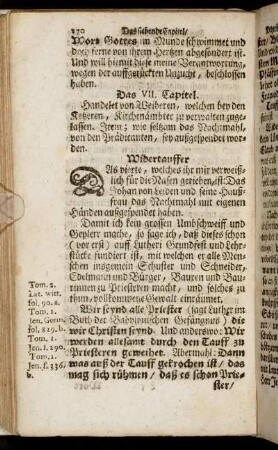 270 Das siebende Capitel/
Wort Gottes im Munde schwimmet und
doch ferne von ihrem Hertzen abgesondert ist.
Und will hiemit diese meine Verantwortung,
wegen der auffgerückten Unzucht, beschlossen
haben.
Das VII. Capitel.
Handelet von Weiberen, welchen bey den
Ketzeren, Kirchenämbter zu verwalten zuge-
lassen. Item; wie seltzam das Nachtmahl,
von den Prädicanten, sey außgespendet wor-
den.
Widertauffer
Das vierte, welches ihr mir verweiß-
lich für die Nasen gerieben, ist: Das
Johan von Leyden und seine Hauß-
frau das Nachtmahl mit eigenen
Händen außgespendet haben.
Damit ich kein grossen Umbschweiff und
Gepleer mache, so sage ich, daß dieses schon
(vor erst) auff Lutheri Grundfest und Lehr-
stücke fundiert ist, mit welchen er alle Men-
schen insgemein Schuster und Schneider,
Edelmann und Bürger, Bauren und Bäu-
rinnen zu Priesteren macht, und solches zu
thun, vollkommene Gewalt einraumet.
Tom. 2.
Lat. witt.
fol. 90. a.
Tom. 1.
Jen. Germ.
fol. 829. b.
Tom. 2.
Jen. f. 290.
Tom. 1.
Jen. f. 336.
b.
Wir seynd alle Priester (sagt Luther im
Buch der Babylonischen Gefängnus) die
wir Christen seynd. Und anderswo: Wir
werden allesamt durch den Tauff zu
Priesteren geweihet. Abermahl: Dann
was auß der Tauff gekrochen ist / das
mag sich rühmen / daß es schon Prie-
ster/